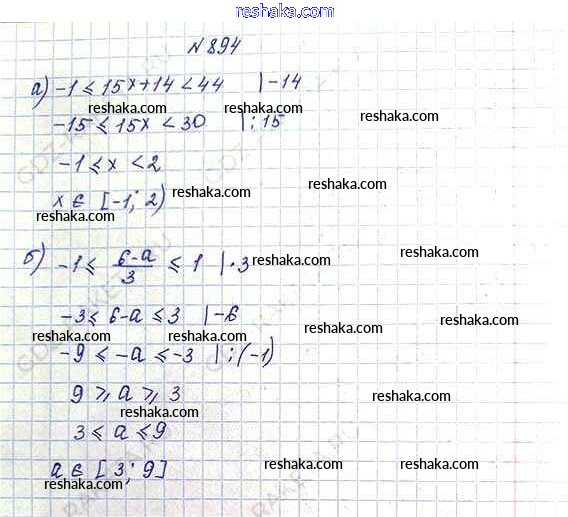 reshaka.com
№894
а) -1 ≤ 15x+14 < 44 |-14
reshaka.com reshaka.com
-15 ≤ 15x < 30 |:15
reshaka.com
-1 ≤ x < 2
reshaka.com reshaka.com
x ∈ [-1; 2)
reshaka.com
б) -1 ≤ (6-a)/3 ≤ 1 |·3
reshaka.com
-3 ≤ 6-a ≤ 3 |-6
reshaka.com reshaka.com reshaka.com
-9 ≤ -a ≤ -3 |:(-1)
9 ≥ a ≥ 3
reshaka.com reshaka.com
3 ≤ a ≤ 9
a ∈ [3; 9]
reshaka.com reshaka.com reshaka.com